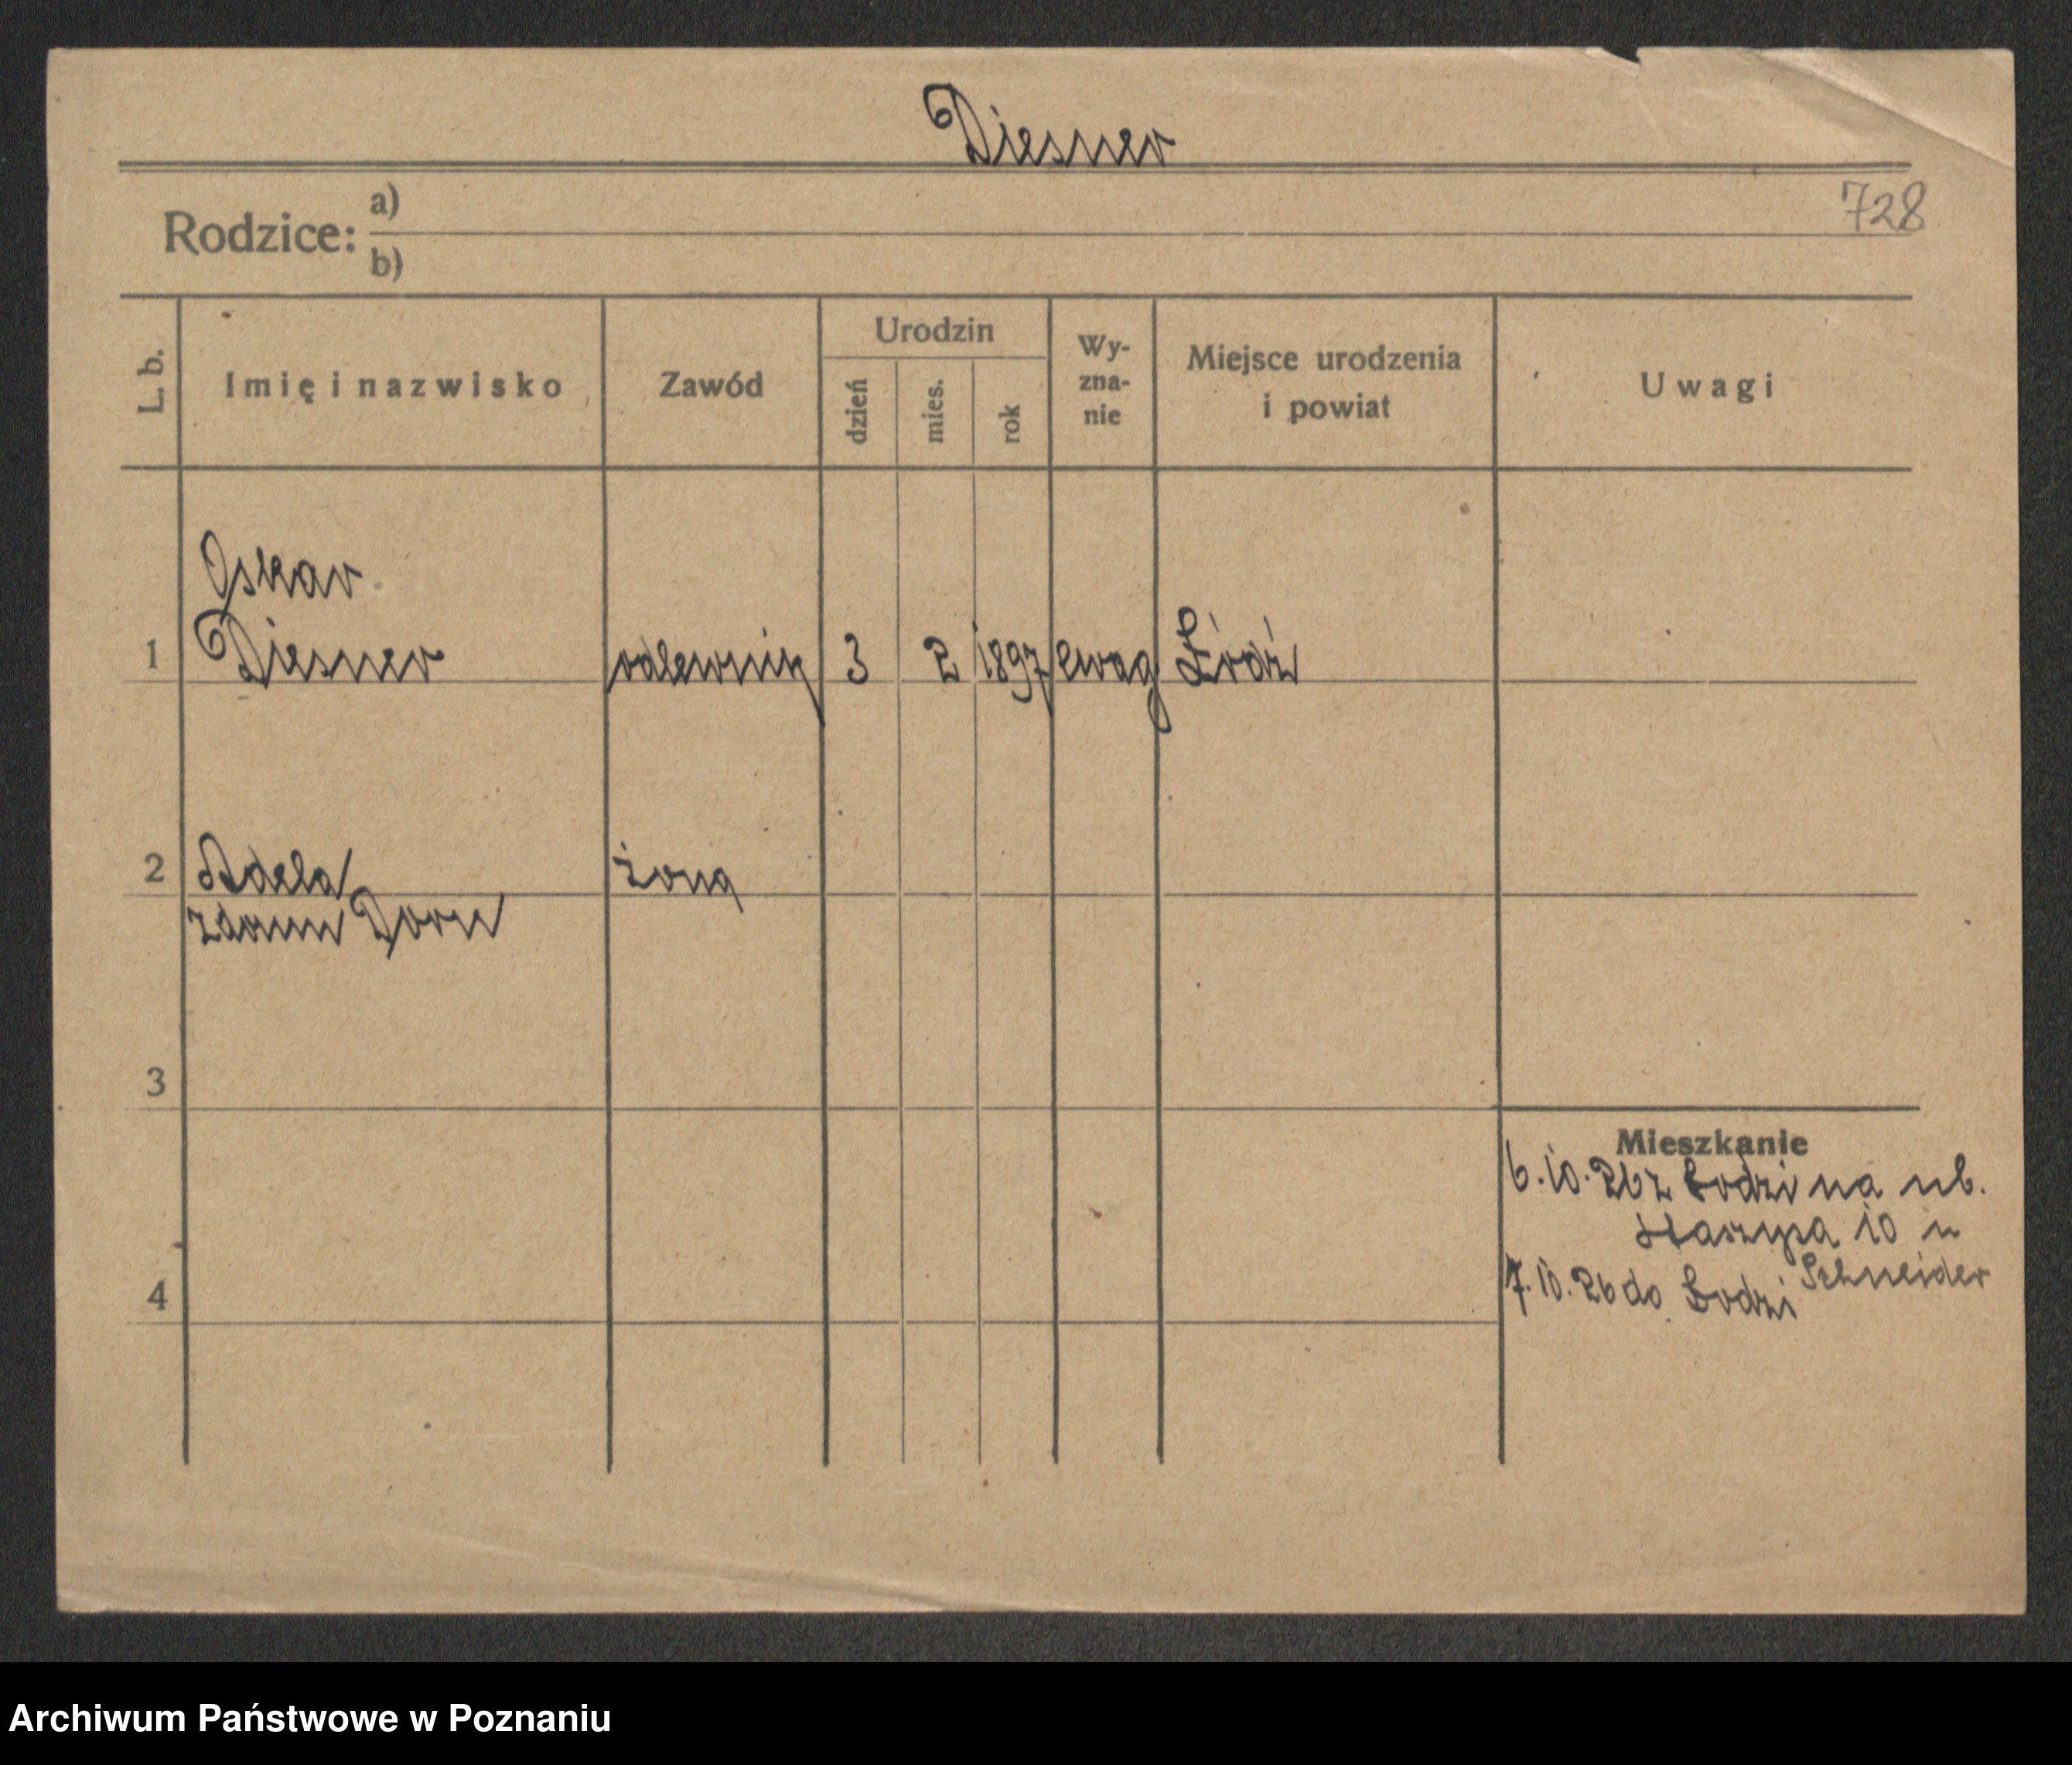 Diesner
728
Rodzice: a)
b)
L. b.
Imię i nazwisko
Zawód
Urodzin
dzień
mies.
rok
Wy-
zna-
nie
Miejsce urodzenia
i powiat
Uwagi
Oskar
1 Diesner odlewnik 3 2 1897 ewag Łódź
2 Adela żona
z domu Dorn
3
Mieszkanie
6.10.26 z Łodzi na ul.
Staszyca 10 u
Schneider
4
7.10.26 do Łodzi
Archiwum Państwowe w Poznaniu